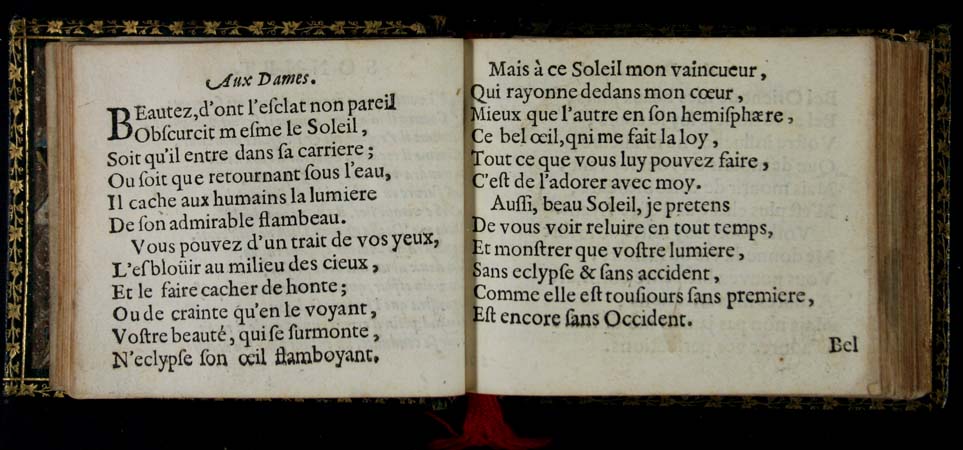 Aux Dames.
BEautez, d'ont l'eſclat non pareil
Obſcurcit meſme le Soleil,
Soit qu'il entre dans ſa carriere;
Ou ſoit que retournant ſous l'eau,
Il cache aux humains la lumiere
De ſon admirable flambeau.
Vous pouvez d'un trait de vos yeux,
L'eſbloüir au milieu des cieux,
Et le faire cacher de honte;
Ou de crainte qu'en le voyant,
Voſtre beauté, qui ſe ſurmonte,
N'eclypſe ſon œil flamboyant.
Mais à ce Soleil mon vaincueur,
Qui rayonne dedans mon cœur,
Mieux que l'autre en ſon hemiſphære,
Ce bel œil, qni me fait la loy,
Tout ce que vous luy pouvez faire,
C'eſt de l'adorer avec moy.
Auſſi, beau Soleil, je pretens
De vous voir reluire en tout temps,
Et monſtrer que voſtre lumiere,
Sans eclypſe & ſans accident,
Comme elle eſt touſiours ſans premiere,
Eſt encore ſans Occident.
Bel